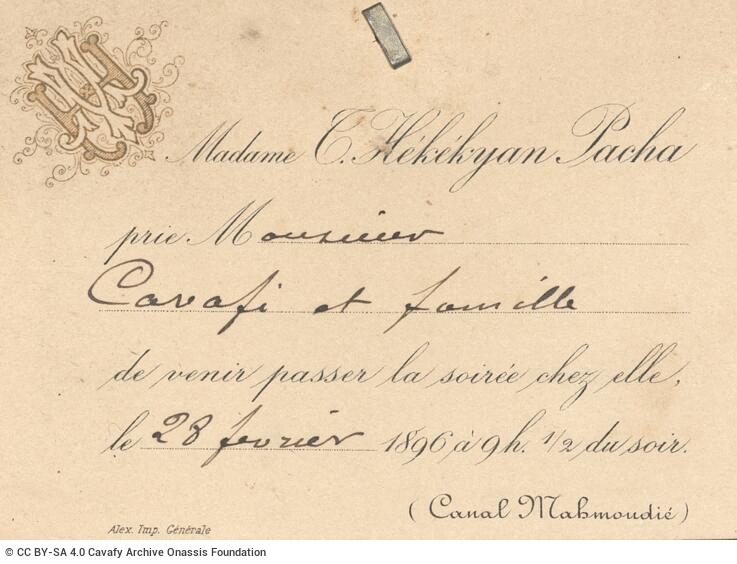 Madame T. Hékékyan Pacha
prie Monsieur
Cavafi et famille
de venir passer la soirée chez elle,
le 28 fevrier 1896 à 9 h. 1/2 du soir.
(Canal Mahmoudié)
Alex. Imp. Générale
© CC BY-SA 4.0 Cavafy Archive Onassis Foundation